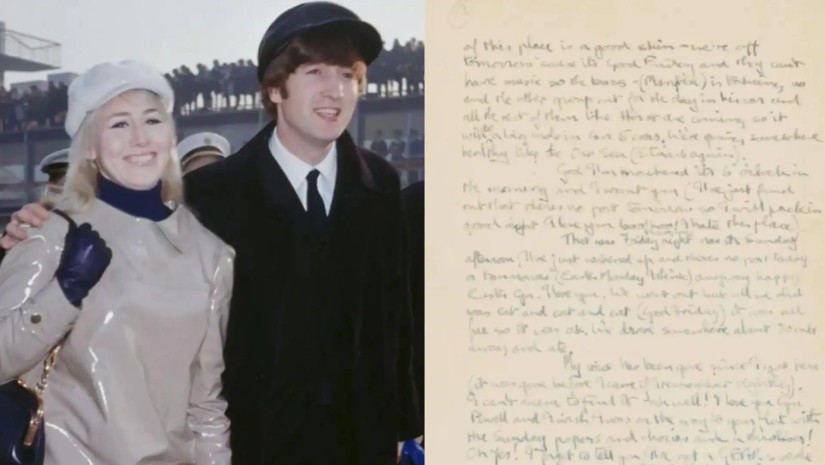 of this place is a good skin – we're off
tomorrow 'cause it's Good Friday and they can't
have music so the boss – (Manfred) is taking us
and the other group out for the day in his car and
all the rest of them like this are coming so it
will be a big in 5 cars, we're going somewhere
healthy like the Ost Sea
God I'm knackered it's 6 o'clock in
the morning and I want you (I've just found
out that there's no post tomorrow so I will pack in
good night I love you boo hoo! I hate this place)
That was Friday night now it's Sunday
afternoon, I've just wakened up and there's no post today
or tomorrow (Easter Monday I think) anyway happy
Easter Cyn. I love you. We went out but all we did
was eat and eat and eat (good Friday) it was all
free so it was ok. We drove somewhere about
away and ate.
My voice has been gone since I got here
(it was gone before I came if I remember rightly).
I can't seem to find it – ah well! I love you Cyn
Powell and I wish I was on the way to your flat with
the Sunday papers and choccies and
Oh Yes! I forgot to tell you I've got a GEAR suede